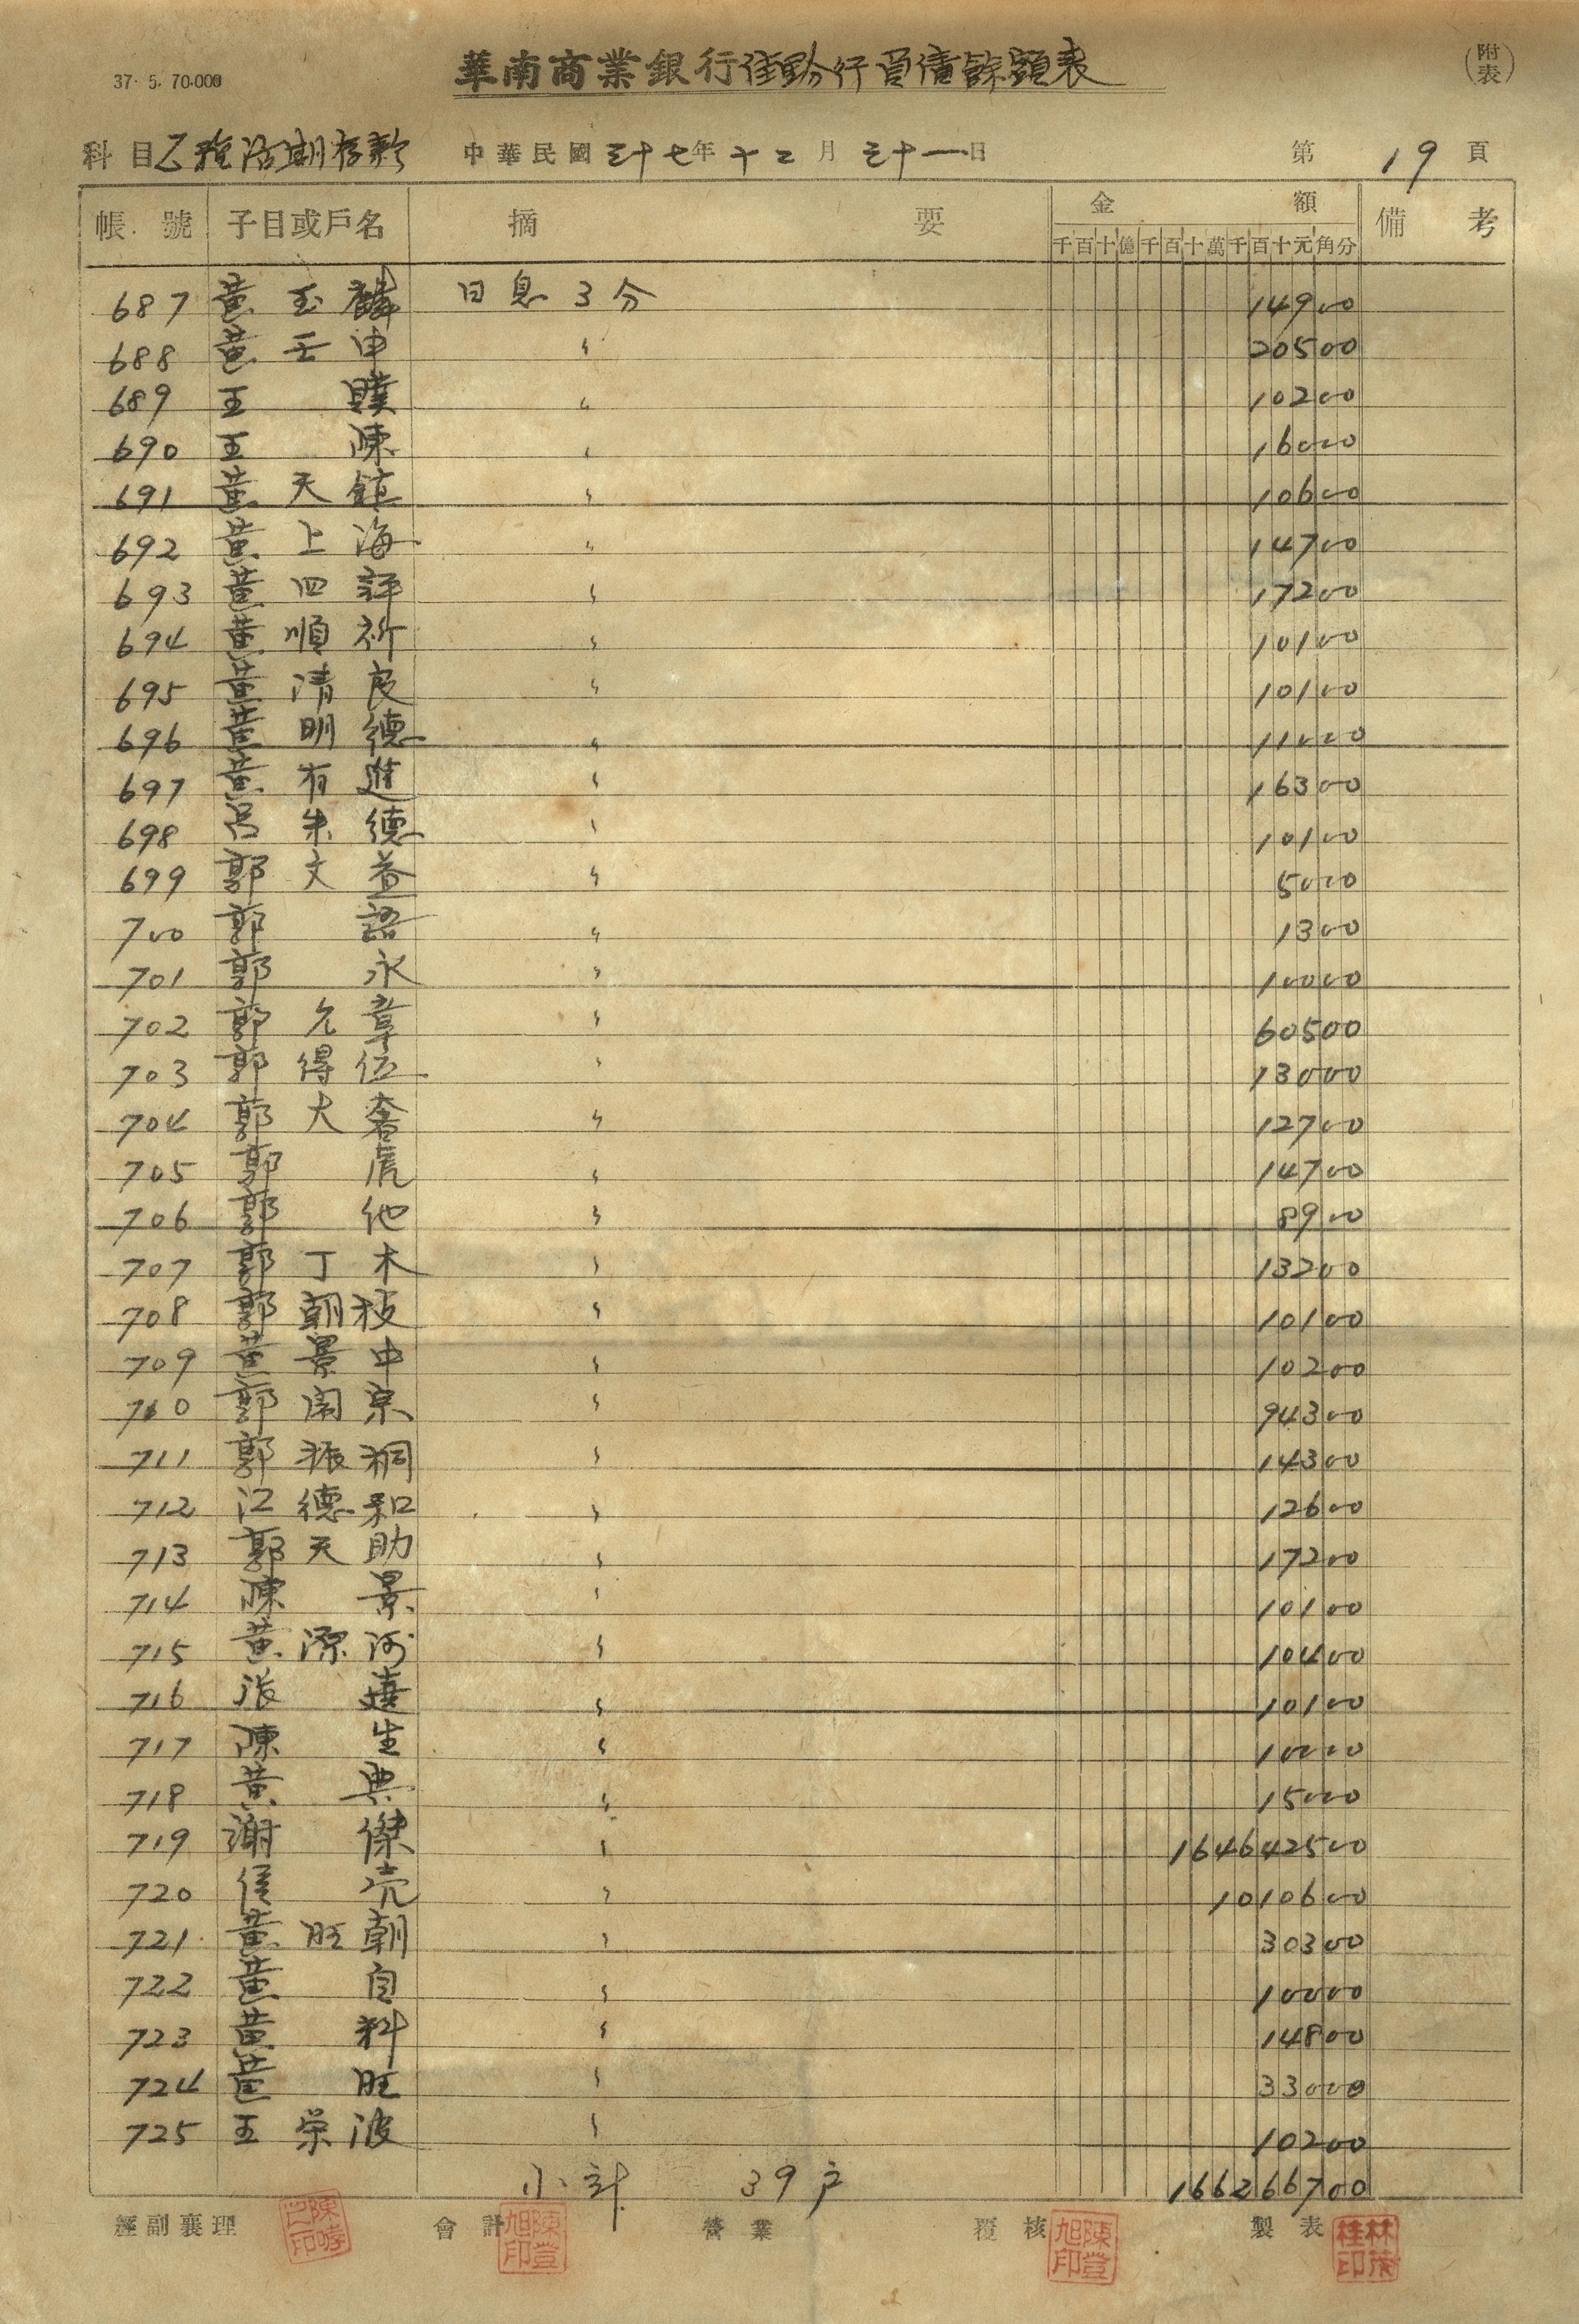 37. 5. 70.000
華南商業銀行佳里分行負債餘額表
(附表)
科目乙種活期存款 中華民國三十七年十二月三十一日 第19頁
帳號 子目或戶名 摘要 金額 備考
千百十億千百十萬千百十元角分
687 黃玉麟 日息3分 14900
688 黃壬申 〃 20500
689 王 〃 10200
690 王陳 〃 16000
691 黃天 〃 10600
692 黃上海 〃 14700
693 黃四評 〃 17200
694 黃順 〃 10100
695 黃清良 〃 10100
696 黃明德 〃 11000
697 黃有進 〃 16300
698 呂朱德 〃 10100
699 郭文益 〃 5000
700 郭語 〃 1300
701 郭永 〃 10000
702 郭允章 〃 60500
703 郭得伍 〃 13000
704 郭大奢 〃 12700
705 郭虎 〃 14700
706 郭他 〃 8900
707 郭丁木 〃 13200
708 郭朝枝 〃 10100
709 黃景中 〃 10200
710 郭開京 〃 94300
711 郭振桐 〃 14300
712 江德和 〃 12600
713 郭天助 〃 17200
714 陳景 〃 10100
715 黃源河 〃 10400
716 張 〃 10100
717 陳生 〃 10000
718 黃典 〃 15000
719 謝傑 〃 164642500
720 侯壳 〃 1010600
721 黃旺朝 〃 30300
722 黃自 〃 10000
723 黃料 〃 14800
724 黃旺 〃 33000
725 王榮波 〃 10200
小計 39戶 166266700
經副襄理 會計 營業 覆核 製表
陳登旭印
陳登旭印
林茂桂印